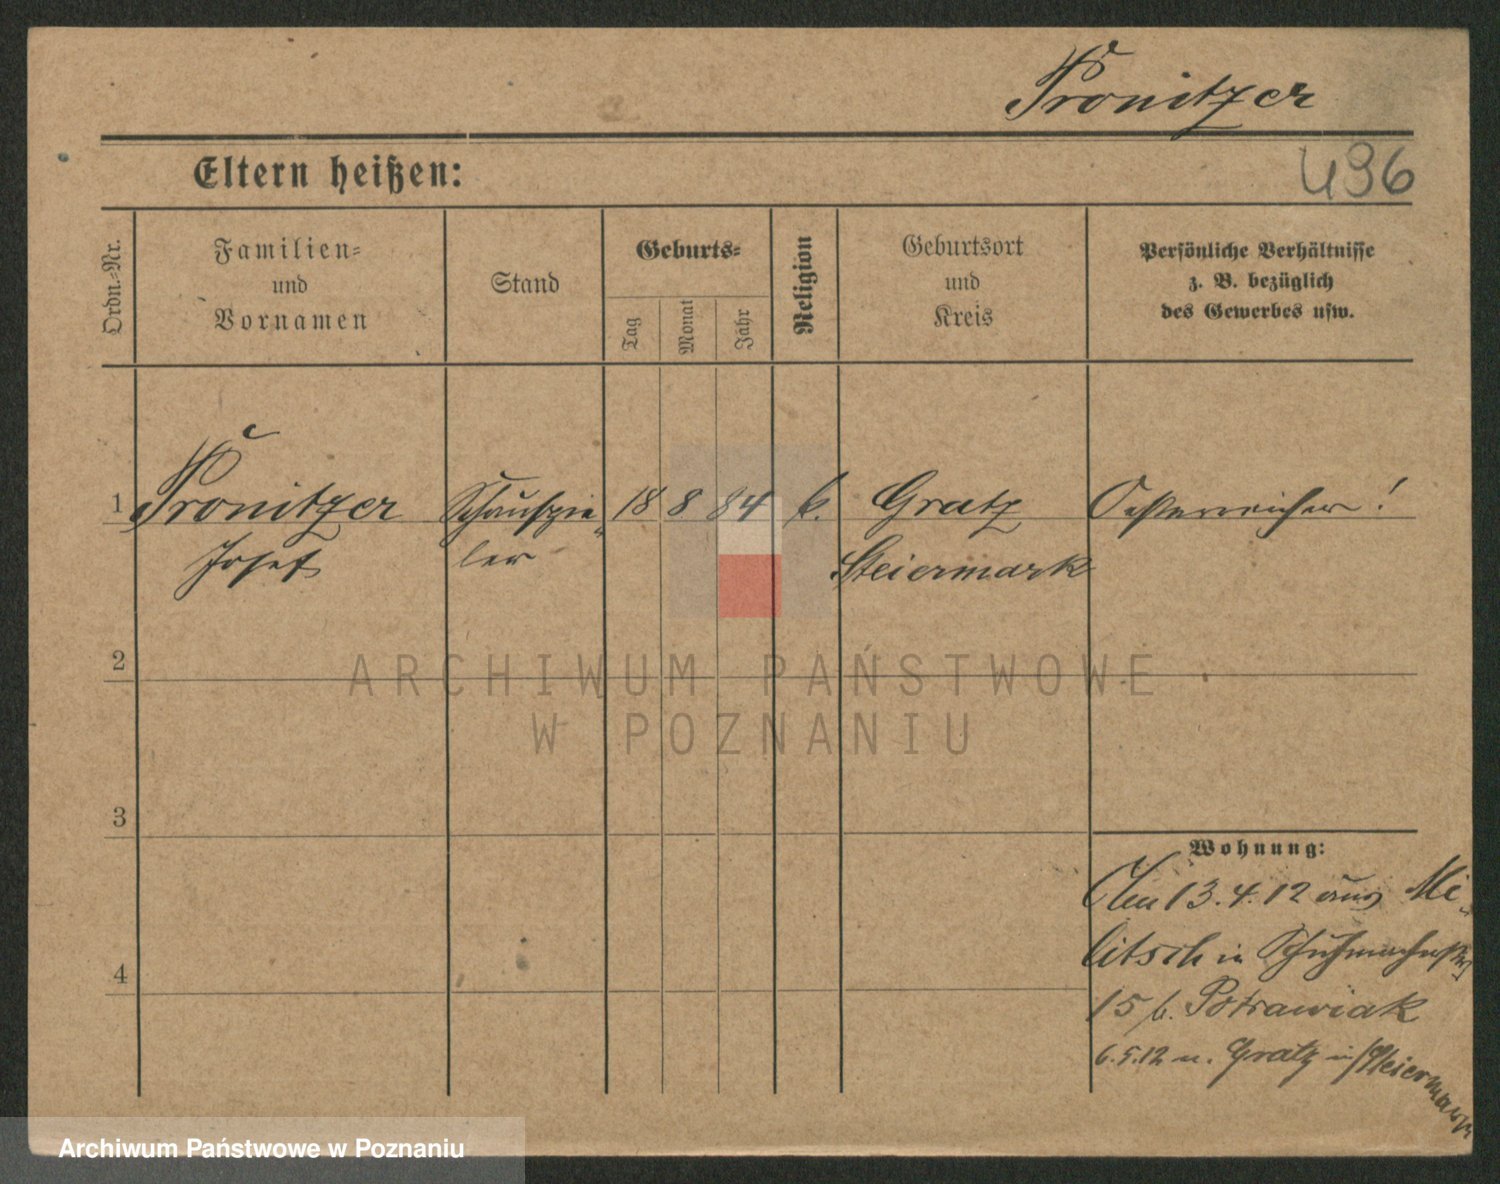 Pronitzer
Eltern heißen:
496
Ordn.=Nr.
Familien=
und
Vornamen
Stand
Geburts=
Tag
Monat
Jahr
Religion
Geburtsort
und
Kreis
Persönliche Verhältnisse
z. B. bezüglich
des Gewerbes usw.
1
Pronitzer
Josef
Schauspie=
ler
18
8
84
k.
Gratz
Steiermark
Oesterreicher!
2
3
4
Wohnung:
13.4.12 aus Mi=
litsch in Schuhmacherstr
15 b. Potrawiak
6.5.12 n. Gratz in Steiermark
ARCHIWUM PAŃSTWOWE
W POZNANIU
Archiwum Państwowe w Poznaniu